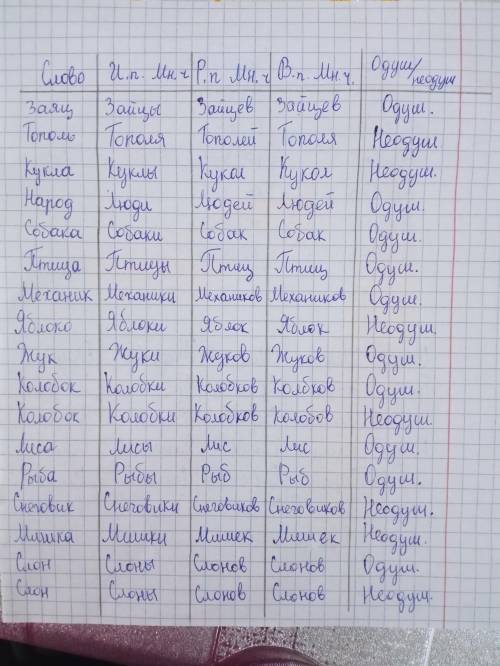 Слово И.п. Мн.ч Р.п Мн.ч В.п. Мн.ч. Одуш/неодуш
Заяц Зайцы Зайцев Зайцев Одуш.
Тополь Тополя Тополей Тополя Неодуш
Кукла Куклы Кукол Кукол Неодуш.
Народ Люди Людей Людей Одуш.
Собака Собаки Собак Собак Одуш.
Птица Птицы Птиц Птиц Одуш.
Механик Механики Механиков Механиков Одуш.
Яблоко Яблоки Яблок Яблок Неодуш.
Жук Жуки Жуков Жуков Одуш.
Колобок Колобки Колобков Колбков Одуш.
Колобок Колобки Колобков Колобов Неодуш.
Лиса Лисы Лис Лис Одуш.
Рыба Рыбы Рыб Рыб Одуш.
Снеговик Снеговики Снеговиков Снеговиков Неодуш.
Мишка Мишки Мишек Мишек Неодуш.
Слон Слоны Слонов Слонов Одуш.
Слон Слоны Слонов Слонов Неодуш.